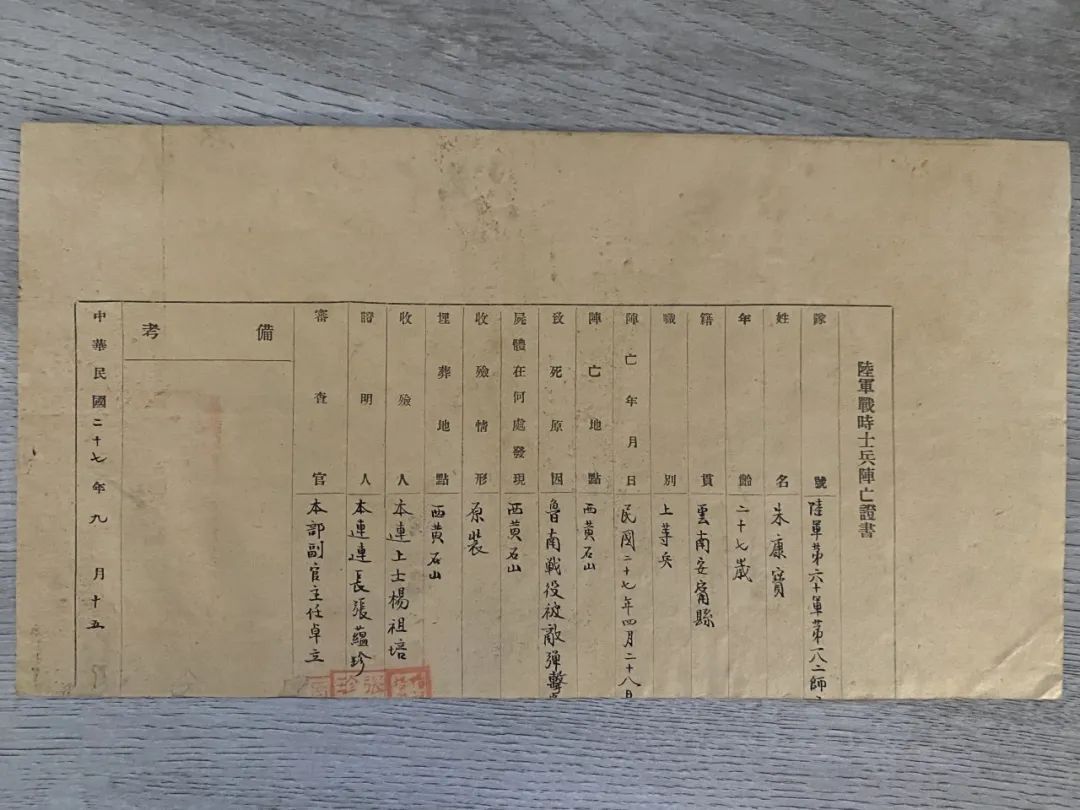 陸軍戰時士兵陣亡證書
隊號 陸軍第六十軍第一八二師
姓名 朱康寶
年齡 二十七歲
籍貫 雲南安甯縣
職別 上等兵
陣亡年月日 民國二十七年四月二十八日
陣亡地點 西黄石山
致死原因 魯南戰役被敵彈擊
屍體在何處發現 西黄石山
收殮情形 原裝
埋葬地點 西黄石山
收殮人 本連上士楊祖培
證明人 本連連長張蘊珍
審查官 本部副官主任卓立
備考
中華民國二十七年九月十五